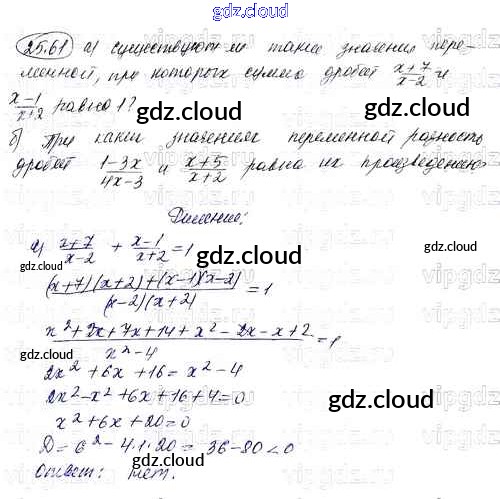 gdz.cloud
25.61 а) существуют ли такие значения пере-
менной, при которых сумма дробей \frac{x+7}{x-2} и
\frac{x-1}{x+2} равна 1?
б) При каких значениях переменной разность
дробей \frac{1-3x}{4x-3} и \frac{x+5}{x+2} равна их произведению
Решение:
а) \frac{x+7}{x-2} + \frac{x-1}{x+2} = 1
\frac{(x+7)(x+2)+(x-1)(x-2)}{(x-2)(x+2)} = 1
\frac{x^2+2x+7x+14+x^2-2x-x+2}{x^2-4} = 1
2x^2+6x+16=x^2-4
2x^2-x^2+6x+16+4=0
x^2+6x+20=0
D=6^2-4·1·20=36-80<0
Ответ: нет.